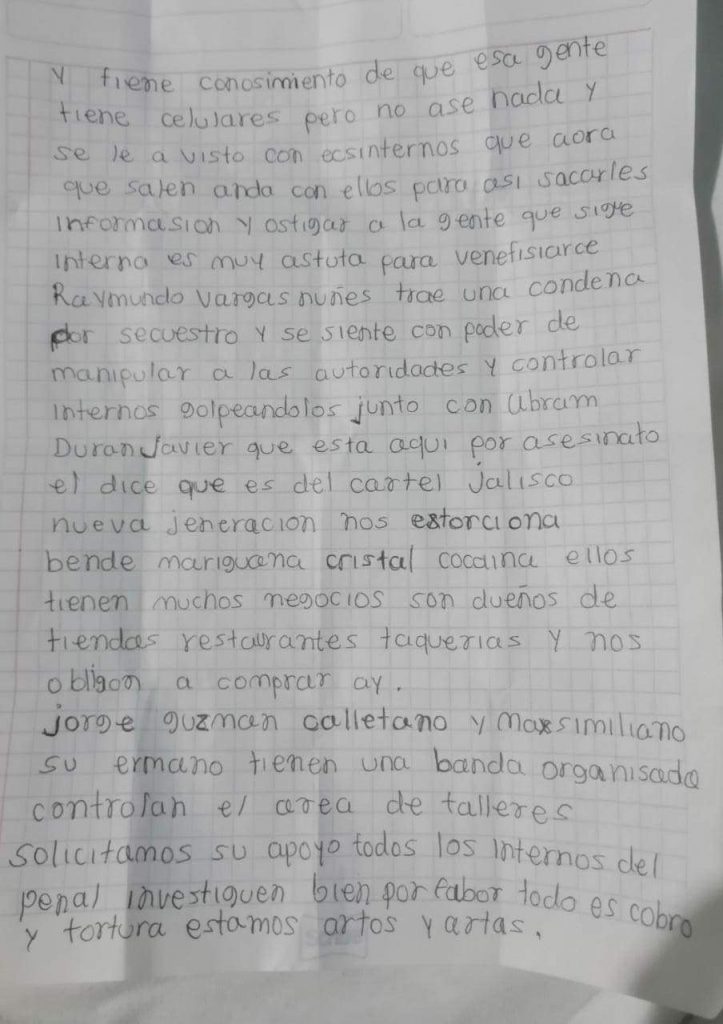 Y tiene conosimiento de que esa gente
tiene celulares pero no ase nada y
se le a visto con ecsinternos que aora
que salen anda con ellos para asi sacarles
informasion y ostigar a la gente que sige
interna es muy astuta para venefisiarce
Raymundo vargas nuñes trae una condena
por secuestro y se siente con poder de
manipular a las autoridades y controlar
internos golpeandolos junto con Abram
Duran Javier que esta aqui por asesinato
el dice que es del cartel jalisco
nueva jeneracion nos estorciona
bende mariguana cristal cocaina ellos
tienen muchos negocios son dueños de
tiendas restaurantes taquerias y nos
obligan a comprar ay.
jorge guzman calletano y maxsimiliano
su ermano tienen una banda organisada
controlan el area de talleres
solicitamos su apoyo todos los internos del
penal investiguen bien por fabor todo es cobro
y tortura estamos artos y artas.